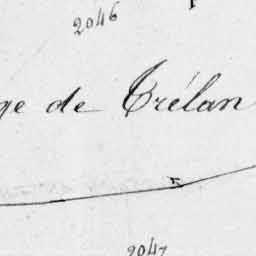 2046
ge de Trélan
2047